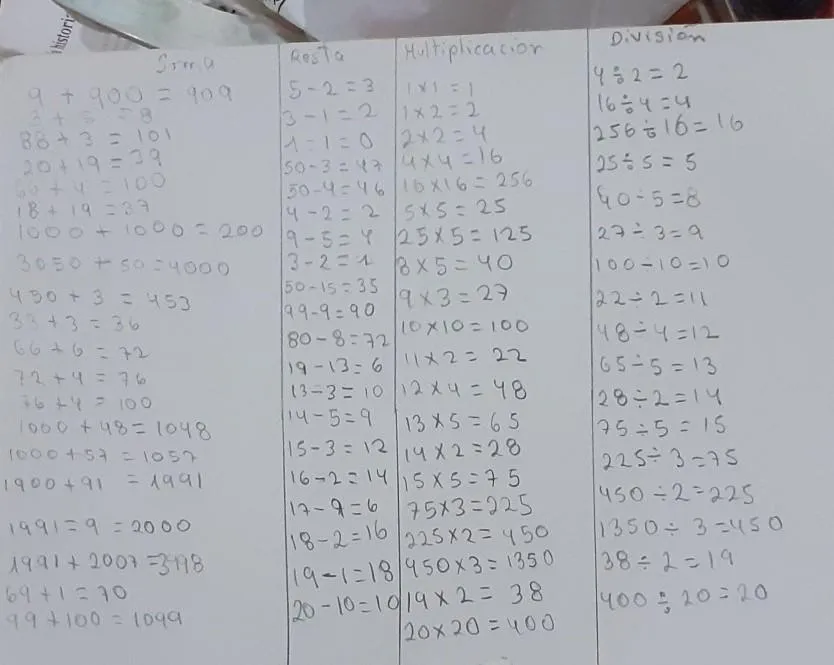 histori
Suma
9 + 900 = 909
3 + 5 = 8
88 + 3 = 101
20 + 19 = 39
66 + 4 = 100
18 + 19 = 37
1000 + 1000 = 200
3050 + 50 = 4000
450 + 3 = 453
33 + 3 = 36
66 + 6 = 72
72 + 4 = 76
76 + 4 = 100
1000 + 48 = 1048
1000 + 57 = 1057
1900 + 91 = 1991
1991 = 9 = 2000
1991 + 2007 = 3998
69 + 1 = 70
99 + 100 = 1099
Resta
5 - 2 = 3
3 - 1 = 2
1 - 1 = 0
50 - 3 = 47
50 - 4 = 46
4 - 2 = 2
9 - 5 = 4
3 - 2 = 1
50 - 15 = 35
99 - 9 = 90
80 - 8 = 72
19 - 13 = 6
13 - 3 = 10
14 - 5 = 9
15 - 3 = 12
16 - 2 = 14
17 - 9 = 6
18 - 2 = 16
19 - 1 = 18
20 - 10 = 10
Multiplicacion
1 x 1 = 1
1 x 2 = 2
2 x 2 = 4
4 x 4 = 16
16 x 16 = 256
5 x 5 = 25
25 x 5 = 125
8 x 5 = 40
9 x 3 = 27
10 x 10 = 100
11 x 2 = 22
12 x 4 = 48
13 x 5 = 65
14 x 2 = 28
15 x 5 = 75
75 x 3 = 225
225 x 2 = 450
450 x 3 = 1350
19 x 2 = 38
20 x 20 = 400
División
4 ÷ 2 = 2
16 ÷ 4 = 4
256 ÷ 16 = 16
25 ÷ 5 = 5
40 ÷ 5 = 8
27 ÷ 3 = 9
100 ÷ 10 = 10
22 ÷ 2 = 11
48 ÷ 4 = 12
65 ÷ 5 = 13
28 ÷ 2 = 14
75 ÷ 5 = 15
225 ÷ 3 = 75
450 ÷ 2 = 225
1350 ÷ 3 = 450
38 ÷ 2 = 19
400 ÷ 20 = 20